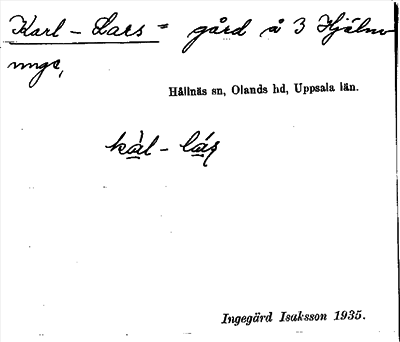 Karl - Lars = gård å 3 Hjälm-
unge,
Hållnäs sn, Olands hd, Uppsala län.
kàl - lás̩
Ingegärd Isaksson 1935.